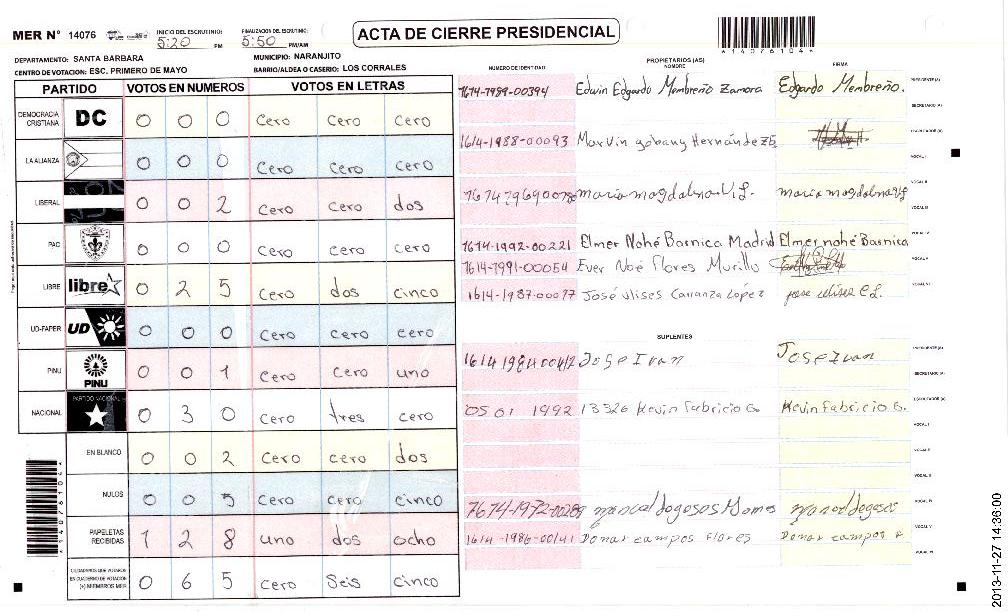 MER N° 14076
INICIO DEL ESCRUTINIO: 5:20 PM
FINALIZACION DEL ESCRUTINIO: 5:50 PM/AM
ACTA DE CIERRE PRESIDENCIAL
*14076104*
DEPARTAMENTO: SANTA BARBARA
MUNICIPIO: NARANJITO
CENTRO DE VOTACION: ESC. PRIMERO DE MAYO
BARRIO/ALDEA O CASERIO: LOS CORRALES
PARTIDO VOTOS EN NUMEROS VOTOS EN LETRAS
DEMOCRACIA CRISTIANA DC 0 0 0 Cero Cero Cero
LA ALIANZA 0 0 0 Cero Cero Cero
LIBERAL 0 0 2 Cero Cero dos
PAC 0 0 0 Cero Cero Cero
LIBRE libre 0 2 5 Cero dos cinco
UD-FAPER UD 0 0 0 Cero Cero Cero
PINU PINU 0 0 1 Cero Cero uno
NACIONAL PARTIDO NACIONAL 0 3 0 Cero tres cero
EN BLANCO 0 0 2 Cero cero dos
NULOS 0 0 5 Cero cero cinco
PAPELETAS RECIBIDAS 1 2 8 uno dos ocho
CIUDADANOS QUE VOTARON EN CUADERNO DE VOTACION (+) MIEMBROS MER 0 6 5 Cero Seis cinco
*140761044*
NUMERO DE IDENTIDAD PROPIETARIOS (AS) NOMBRE FIRMA
1614-1989-00394 Edwin Edgardo Membreño Zamora Edgardo Membreño. PRESIDENTE(A)
SECRETARIO (A)
1614-1988-00093 Marvin gobany Hernández ESCRUTADOR (A)
VOCAL I
maria magdalena maria magdalena VOCAL II
VOCAL III
1614-1992-00221 Elmer Nohé Barnica Madrid Elmer nohé Barnica VOCAL IV
1614-1991-00054 Ever Noé Flores Murillo VOCAL V
1614-1987-00077 José Ulises Carranza López jose ulises C L. VOCAL VI
SUPLENTES
Jose Ivan Jose Ivan PRESIDENTE (A)
SECRETARIO (A)
0501 1992 13326 Kevin Fabricio G. Kevin Fabricio G. ESCRUTADOR (A)
VOCAL I
VOCAL II
VOCAL III
VOCAL IV
1614-1986-00141 Donar campos Flores Donar campos F VOCAL V
VOCAL VI
2013-11-27 14:36:00